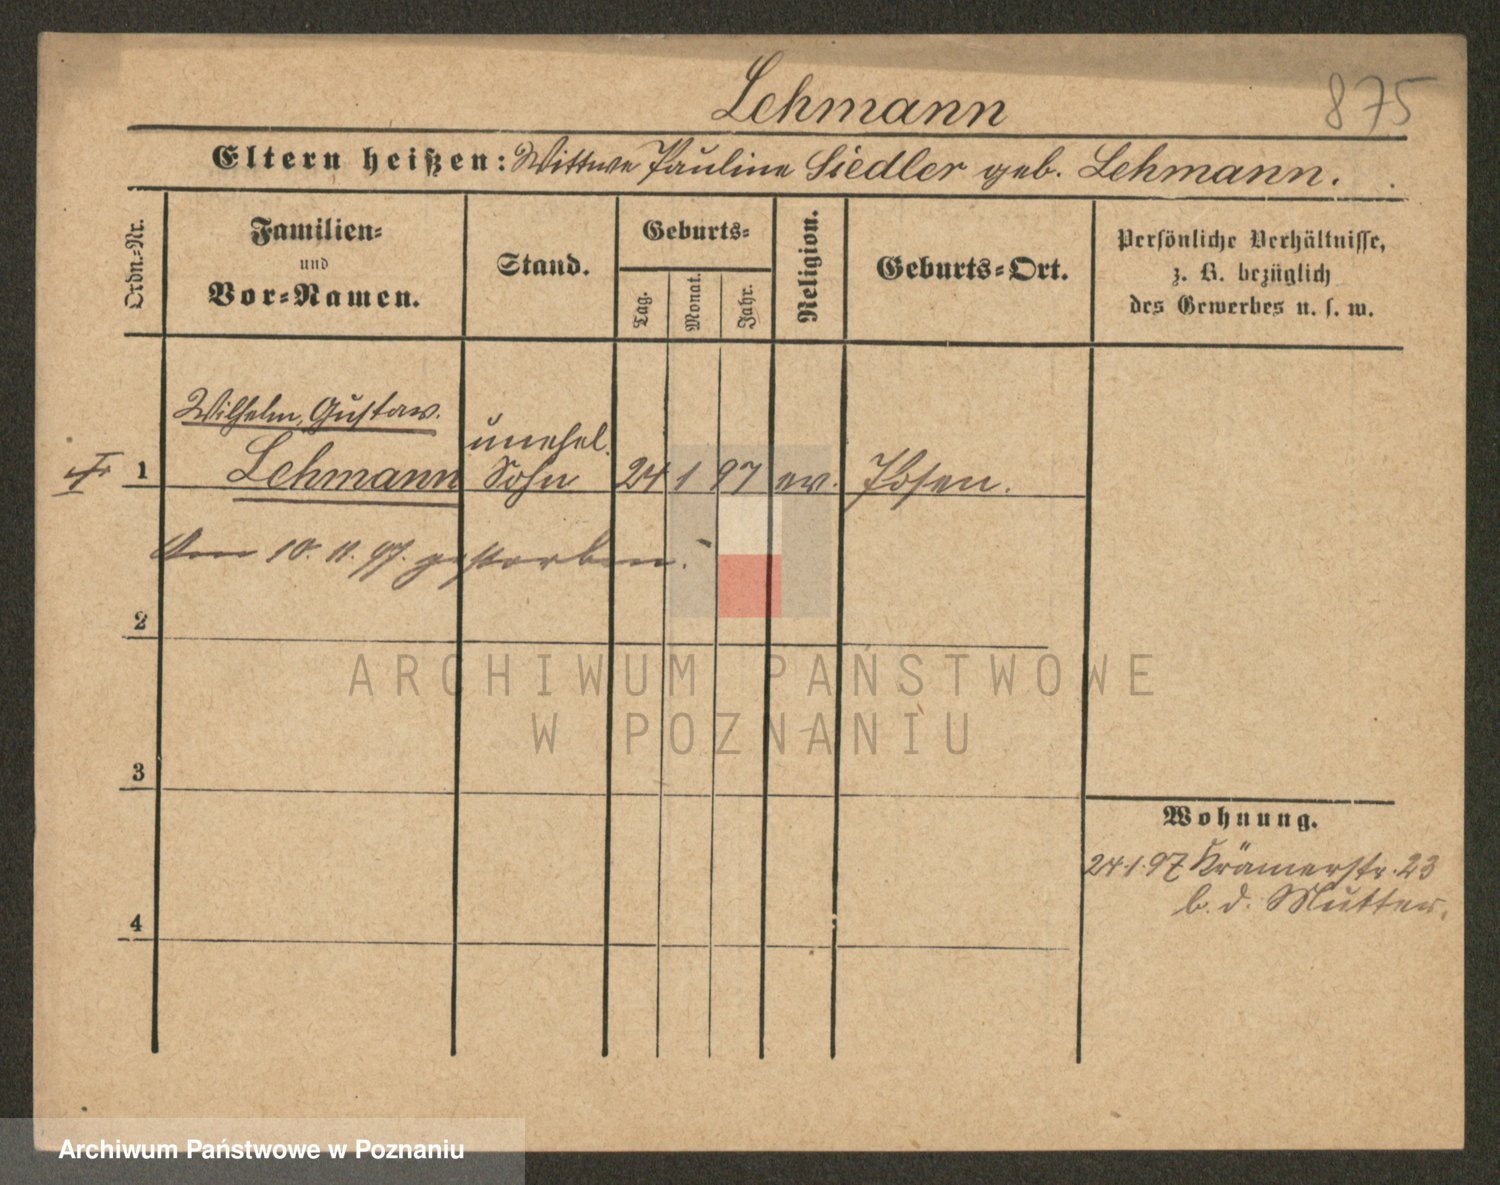 Lehmann
875
Eltern heißen: Wittwe Pauline Siedler geb. Lehmann.
Ordn.-Nr.
Familien-
und
Vor-Namen.
Stand.
Geburts-
Tag.
Monat.
Jahr.
Religion.
Geburts-Ort.
Persönliche Verhältnisse,
z. B. bezüglich
des Gewerbes u. s. w.
Wilhelm, Gustav.
unehel.
1 Lehmann Sohn 24 1 97 ev. Posen.
Am 10. 11. 97. gestorben.
2
ARCHIWUM PAŃSTWOWE
W POZNANIU
3
Wohnung.
24.1.97 Krämerstr. 23
b. d. Mutter.
4
Archiwum Państwowe w Poznaniu